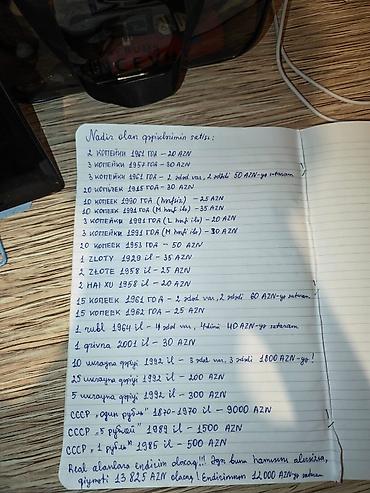 Nadir olan qəpiklərimin satışı:
2 КОПЕЙКИ 1961 ГОД - 20 AZN
3 КОПЕЙКИ 1957 ГОД - 30 AZN
3 КОПЕЙКИ 1961 ГОД - 2 ədəd var, 2 ədədi 50 AZN-yə satıram
20 КОПЕЕК 1915 ГОД - 30 AZN
10 КОПЕЕК 1990 ГОД (hərfsiz) - 25 AZN
10 КОПЕЕК 1991 ГОД (М hərf ilə) - 35 AZN
3 КОПЕЙКИ 1991 ГОД (L hərf ilə) - 20 AZN
3 КОПЕЙКИ 1991 ГОД (М hərf ilə) - 30 AZN
20 КОПЕЕК 1953 ГОД - 50 AZN
1 ZLOTY 1929 il - 35 AZN
2 ZLOTE 1958 il - 25 AZN
2 HAI XU 1958 il - 20 AZN
15 КОПЕЕК 1961 ГОД - 2 ədəd var, 2 ədədi 60 AZN-yə satıram
15 КОПЕЕК 1962 ГОД - 25 AZN
1 rubl 1964 il - 4 ədəd var, 4 dünü 40 AZN-yə satıram
1 grivna 2001 il - 30 AZN
10 ukrayna qəpiyi 1992 il - 3 ədəd var, 3 ədədi 1800 AZN-yə!
25 ukrayna qəpiyi 1992 il - 200 AZN
5 ukrayna qəpiyi 1992 il - 300 AZN
СССР „один рубль" 1870-1970 il - 9000 AZN
СССР „5 рублей" 1989 il - 1500 AZN
СССР „1 рубль" 1985 il - 500 AZN
Real alanlara endirim olacaq!!! Əgər bunu hamısını alırsızsa,
qiyməti 13 825 AZN olacaq! Endirimnən 12 000 AZN-yə satıram